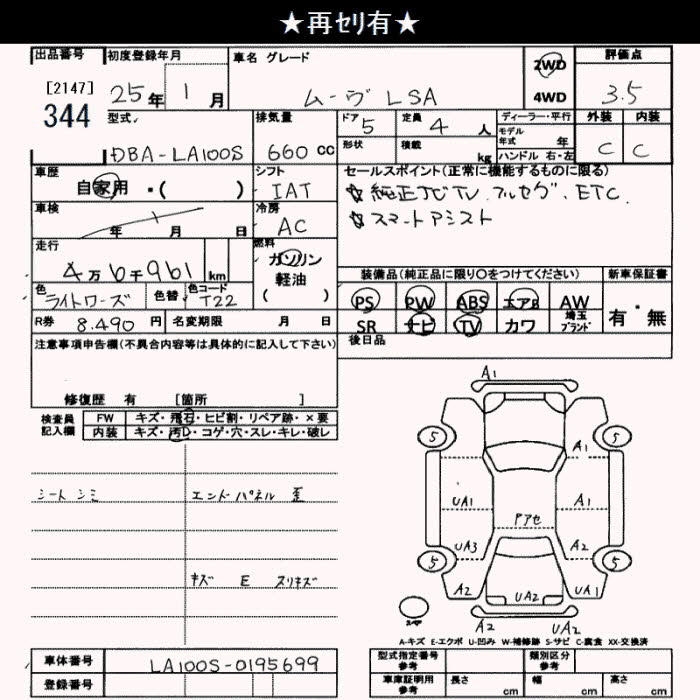 ★再ｾﾘ有★
出品番号 初度登録年月 車名 グレード 評価点
[2147] 25年 1月 ムーヴ LSA 2WD 4WD 3.5
344
型式 排気量 ドア 5 定員 4人 ディーラー・平行 外装 内装
DBA-LA100S 660cc 形状 積載 kg モデル年式 年 ハンドル 右・左 C C
車歴 シフト セールスポイント(正常に機能するものに限る)
自家用 ・( ) IAT ☆純正ナビTV.フルセグ.ETC
車検 冷房 ☆スマートアシスト
年 月 日 AC
走行 燃料
4万6千961km ガソリン 軽油 ( ) 装備品(純正品に限り〇をつけてください) 新車保証書
色 色替 色コード PS PW ABS エアB AW 有・無
ライトローズ T22
R券 8.490円 名変期限 月 日 SR ナビ TV カワ 埼玉ブランド
注意事項申告欄(不具合内容等は具体的に記入して下さい) 後日品
修復歴 有 [箇所 ]
検査員記入欄 FW キズ・飛石・ヒビ割・リペア跡・×要
内装 キズ・汚レ・コゲ・穴・スレ・キレ・破レ
シート シミ エンドパネル 歪
キズ E スリキズ
A1
5 5
A1
UA1 A1
Pアセ
UA3 A2
5 5
A2 UA2 UA1
スペヤ A2 UA2
A-キズ E-エクボ U-凹み W-補修跡 S-サビ C-腐食 XX-交換済
車体番号 LA100S-0195699 型式指定番号 参考 類別区分 参考
登録番号 車庫証明用 参考 長さ cm 幅 cm 高さ cm